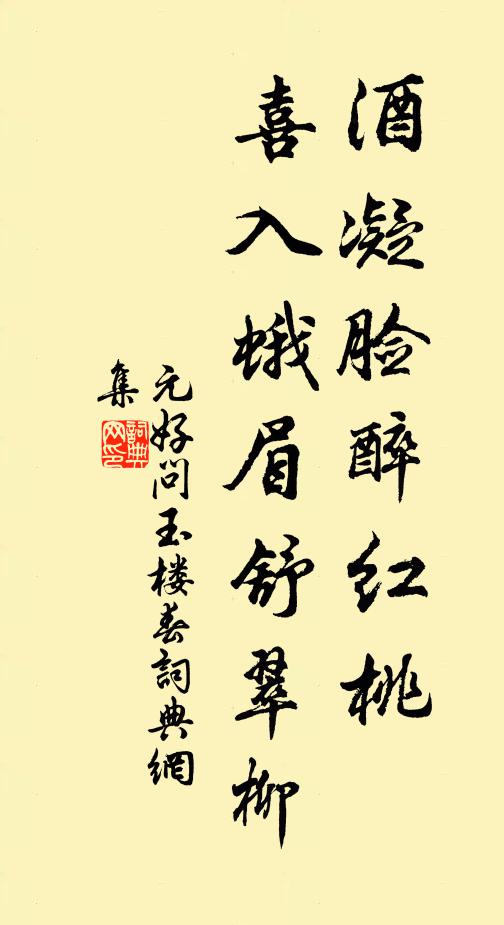 酒凝脸醉红桃
喜入蛾眉舒翠柳
元好问玉楼春詞典網
集
詞典
网印